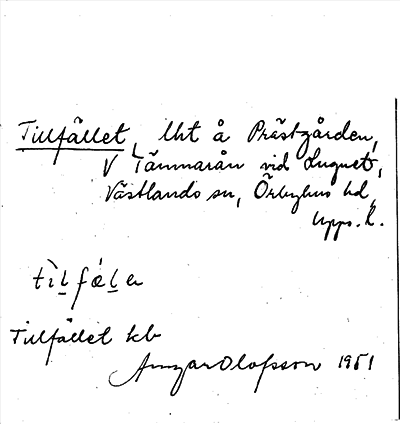 Tillfället, lht å Prästgården,
V Tämnarån vid Luguet,
Västlands sn, Örbyhus hd,
Upps. l.
tìl̲fǽl̲er
Tillfället kb
Olofsson 1951